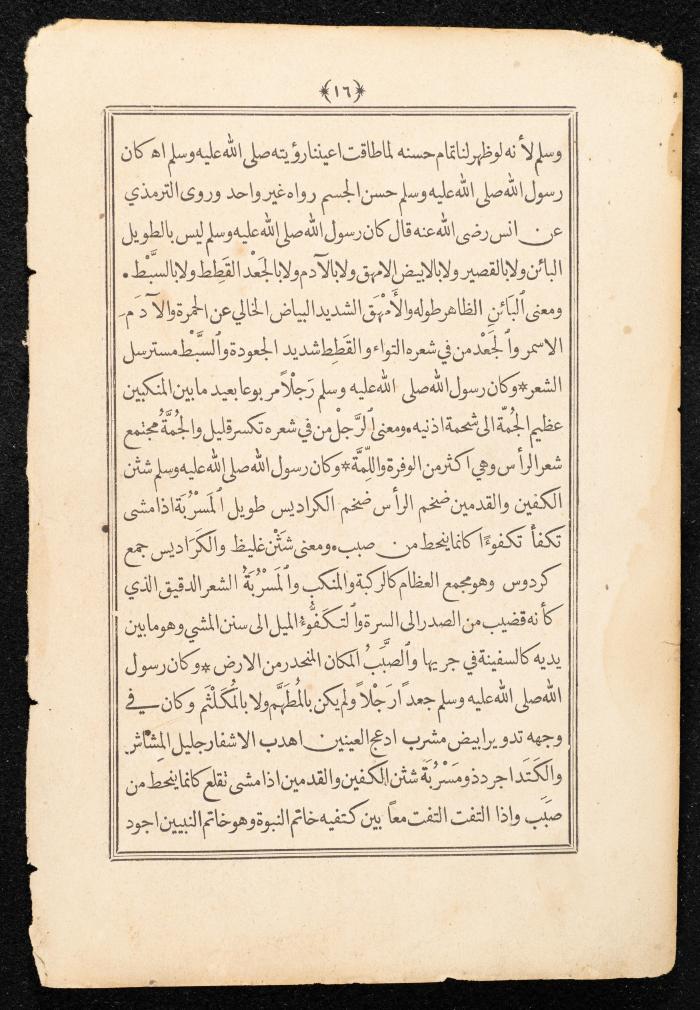 ﴿١٦﴾
وسلم لأنه لو ظهر لنا تمام حسنه لما طاقت اعيننا رؤيته صلى الله عليه وسلم اه كان
رسول الله صلى الله عليه وسلم حسن الجسم رواه غير واحد وروى الترمذي
عن انس رضى الله عنه قال كان رسول الله صلى الله عليه وسلم ليس بالطويل
البائن ولا بالقصير ولا بالابيض الامهق ولا بالآدم ولا بالجَعْد القَطِط ولا بالسَّبْط •
ومعنى ٱلبَائِنِ الظاهر طوله والأَمْهَق الشديد البياض الخالي عن الحمرة والآدَم
الاسمر وٱلجَعْد من في شعره التواء والقَطِط شديد الجعودة وٱلسَّبْط مسترسل
الشعر * وكان رسول الله صلى الله عليه وسلم رَجْلاً مربوعا بعيد ما بين المنكبين
عظيم الجُمّة الى شحمة اذنيه • ومعنى ٱلرَّجل من في شعره تكسر قليل والجُمَّةُ مجتمع
شعر الرأس وهي اكثر من الوفرة واللِّمَّة * وكان رسول الله صلى الله عليه وسلم شثن
الكفين والقدمين ضخم الرأس ضخم الكراديس طويل ٱلمَسْرُبَة اذا مشى
تكفأ تكفوءًا كانما ينحط من صبب • ومعنى شَثْن غليظ والكَرَاديس جمع
كردوس وهو مجمع العظام كالركبة والمنكب وٱلمَسْرُبَةُ الشعر الدقيق الذي
كأنه قضيب من الصدر الى السرة وٱلتكَفُّوءُ الميل الى سنن المشي وهو ما بين
يديه كالسفينة في جريها وٱلصَّبَبُ المكان المنحدر من الارض * وكان رسول
الله صلى الله عليه وسلم جعداً رَجْلاً ولم يكن بالمُطَهَّم ولا بالمُكَلْثَم وكان في
وجهه تدوير ابيض مشرب ادعج العينين اهدب الاشفار جليل المِشَاش
والكَتَد اجرد ذو مَسْرُبَة شثن الكفين والقدمين اذا مشى تقلع كانما ينحط من
صَبَب واذا التفت التفت معاً بين كتفيه خاتم النبوة وهو خاتم النبيين اجود